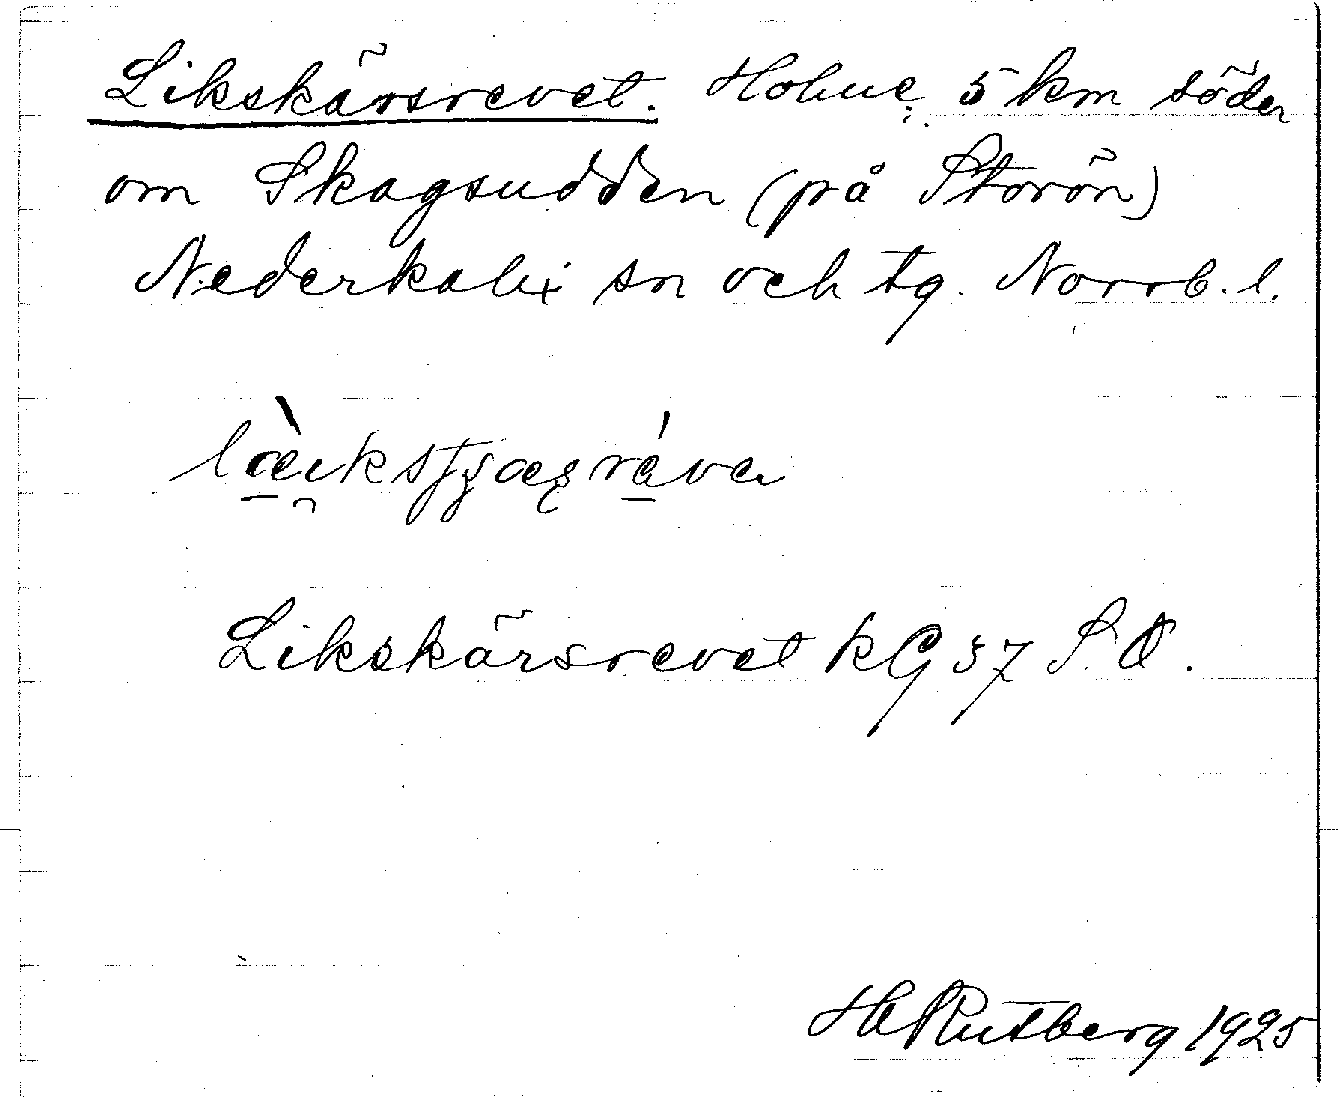 Likskärsrevet. Holme 5 km söder
om Skagsudden (på Storön)
Nederkalix sn och tg. Norrb. l.
Likskärsrevet KG 37 S.O.
H Rutberg 1925